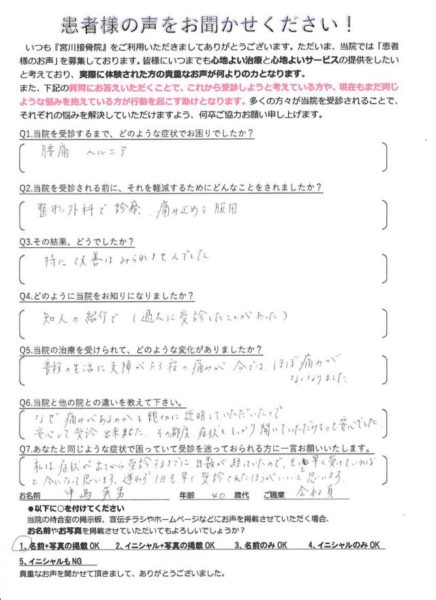 患者様の声をお聞かせください！
いつも『宮川接骨院』をご利用いただきましてありがとうございます。ただいま、当院では「患者
様のお声」を募集しております。皆様にいつまでも心地よい治療と心地よいサービスの提供をしたい
と考えており、実際に体験された方の貴重なお声が何よりの力となります。
また、下記の質問にお答えいただくことで、これから受診しようと考えている方や、現在もまだ同じ
ような悩みを抱えている方が行動を起こす助けとなります。多くの方々が当院を受診されることで、
それぞれの悩みを解決していただけますよう、何卒ご協力お願い申し上げます。
Q1.当院を受診するまで、どのような症状でお困りでしたか？
腰痛 ヘルニア
Q2.当院を受診される前に、それを軽減するためにどんなことをされましたか？
整形外科で診察、痛み止めを服用
Q3.その結果、どうでしたか？
特に改善はみられませんでした
Q4.どのように当院をお知りになりましたか？
知人の紹介で（過去に受診したことがあった）
Q5.当院の治療を受けられて、どのような変化がありましたか？
普段の生活に支障がある程の痛みが今では、ほぼ痛みが
なくなりました
Q6.当院と他の院との違いを教えて下さい。
なぜ痛みがあるのかを親切に説明していただいたので
安心して受診出来ました。その都度、症状をしっかり聞いていただけるのも安心でした
Q7.あなたと同じような症状で困っていて受診を迷っておられる方に一言お願いいたします。
私は症状が出てから受診するまでに日数が経っていたので、もっと早く受けていれば
と今になって思います。迷わず1日も早く受診されたほうがいいと思います。
お名前 中島 英男 年齢 40 歳代 ご職業 会社員
●以下に○を付けてください
当院の待合室の掲示板、宣伝チラシやホームページなどにお声を掲載させていただく場合、
お名前やお写真を掲載させていただいてもよろしいでしょうか？
1、名前+写真の掲載OK 2、イニシャル+写真の掲載OK 3、名前のみOK 4、イニシャルのみOK
5、イニシャルもNG
貴重なお声を聞かせて頂きまして、ありがとうございました。